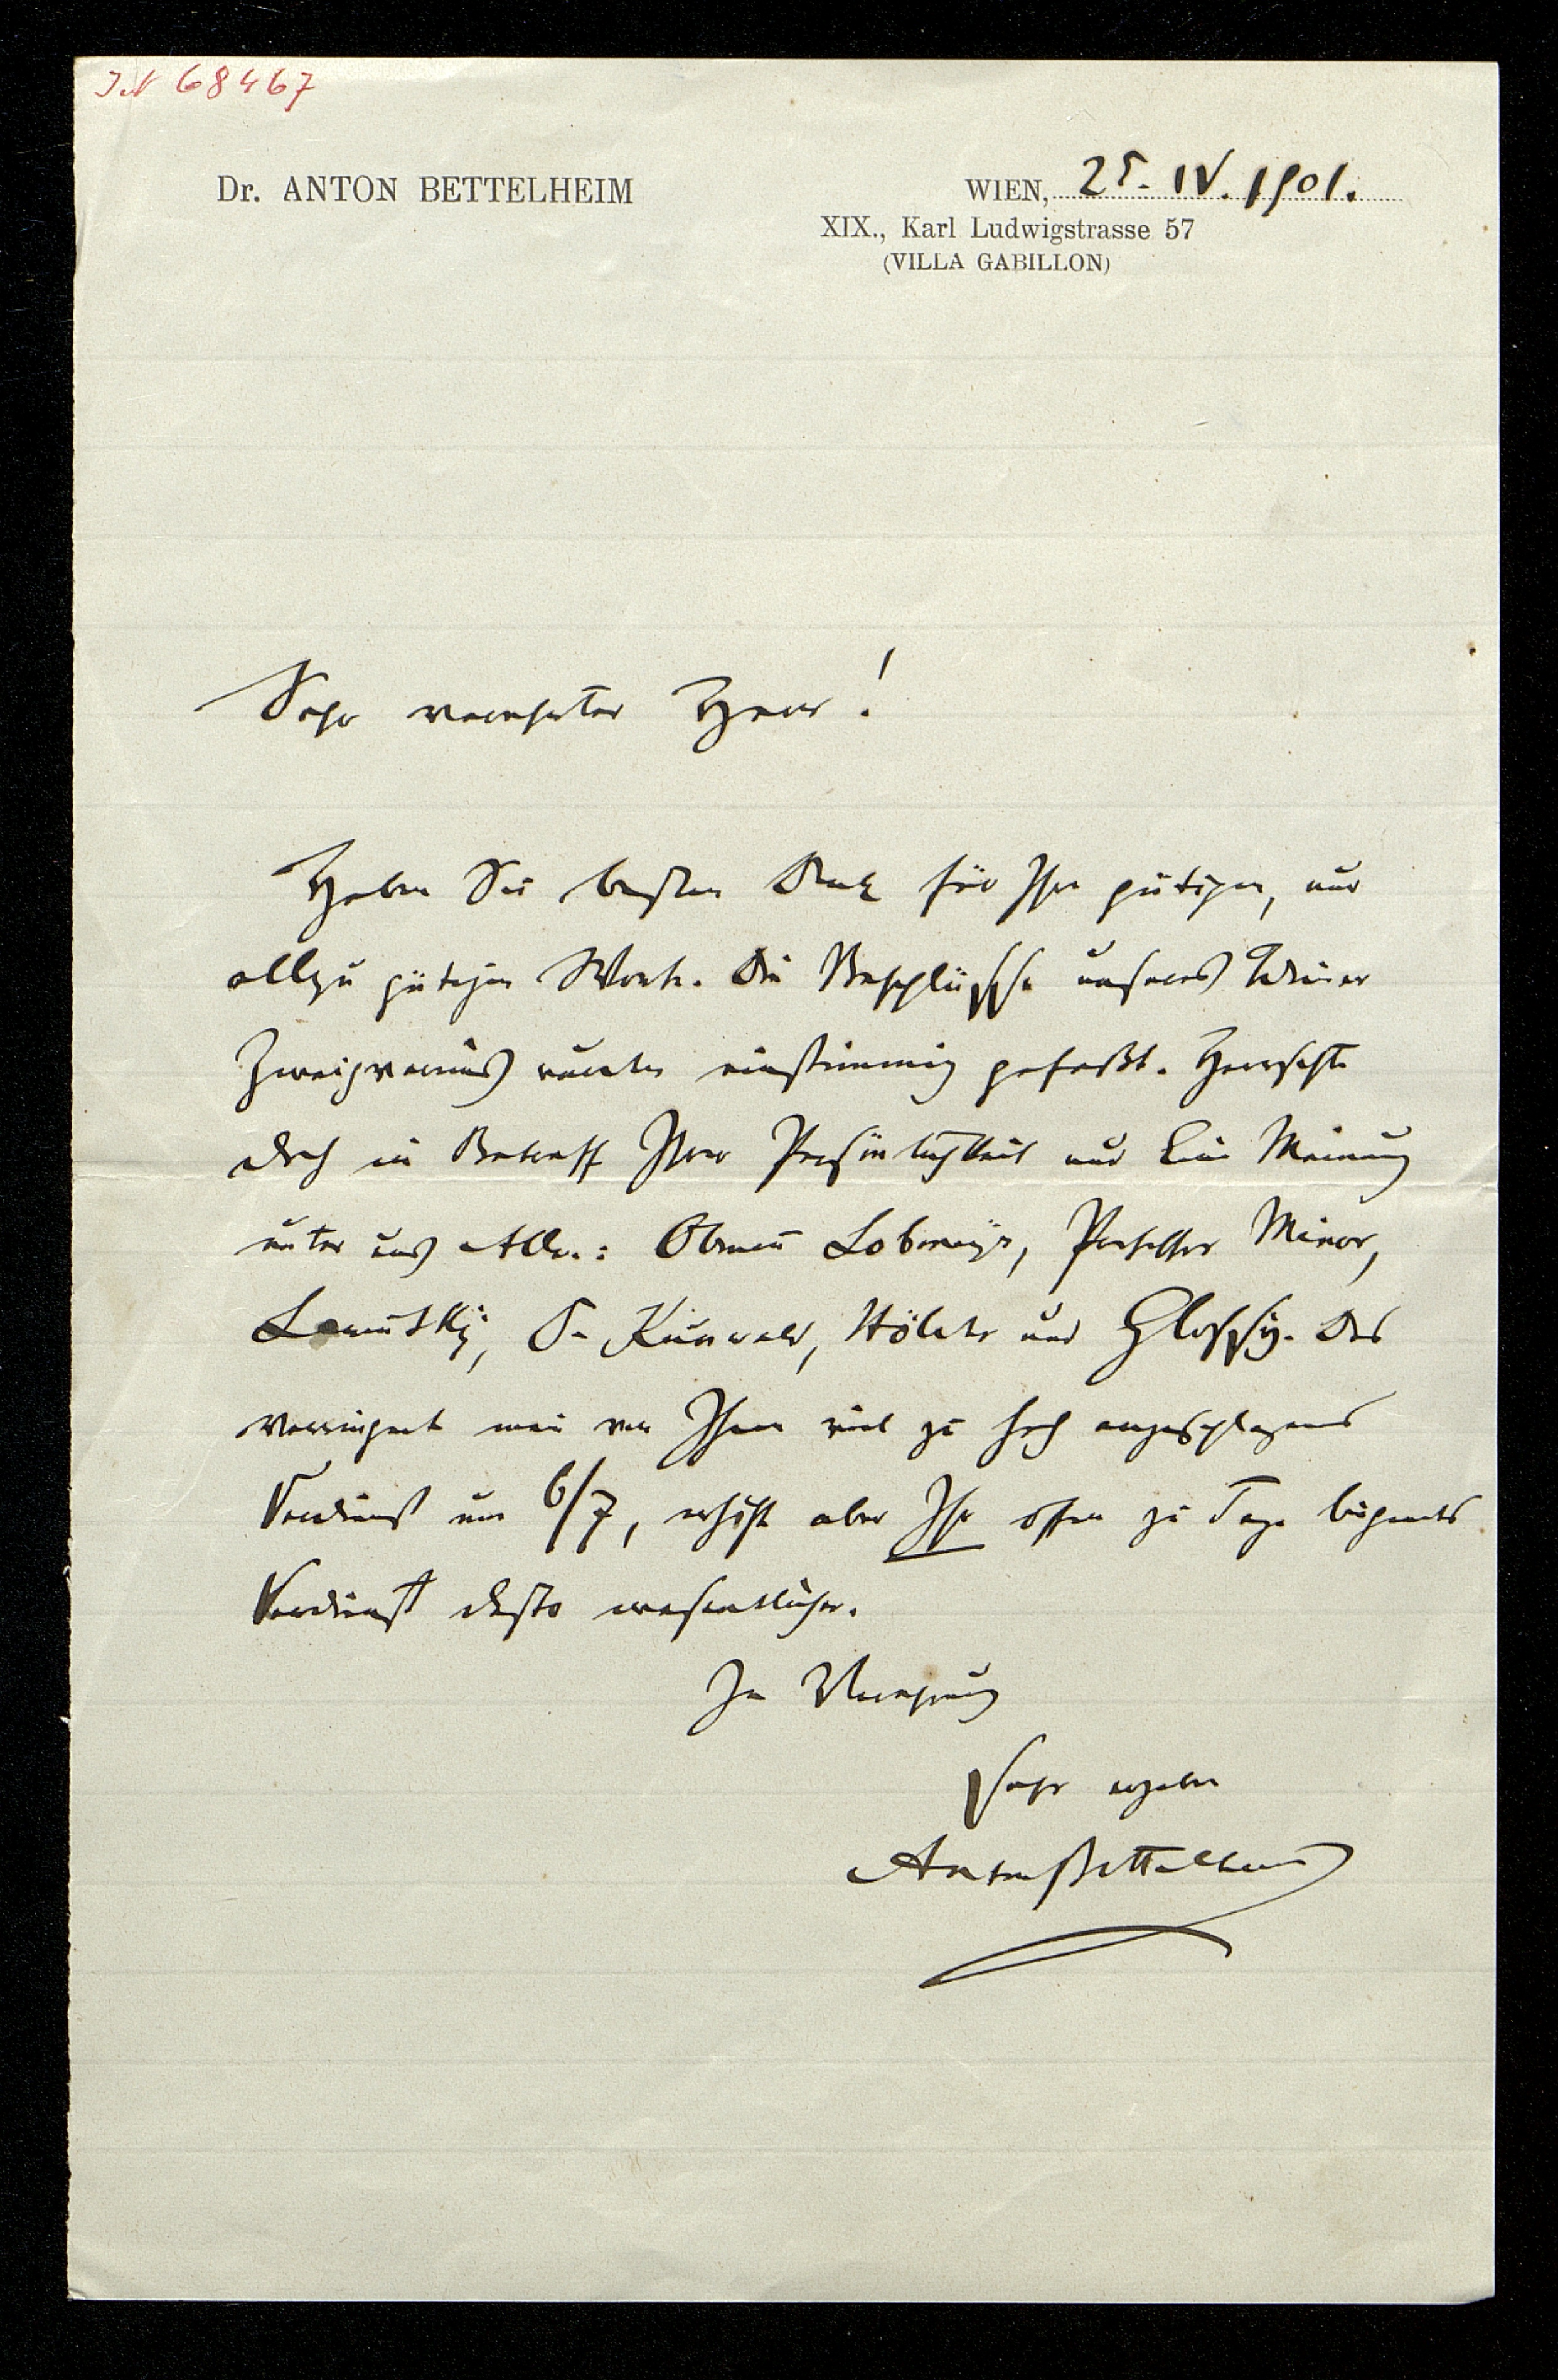 JN 68467
Dr. ANTON BETTELHEIM
WIEN, 25. IV. 1901.
XIX., Karl Ludwigstrasse 57
(VILLA GABILLON)
Sehr verehrter Herr!
Haben Sie besten Dank für Ihre gütigen, nur
allzu gütigen Worte. Die Beschlüsse unseres Wiener
Zweigvereins wurden einstimmig gefaßt. Herrschte
doch in Betreff Ihrer Persönlichkeit nur Eine Meinung
unter uns Allen: Obmann Lobmeyr, Professor Minor,
Lewinsky, Dr Kunwald, Hölder und Glossy. Das
verringert mein von Ihnen viel zu hoch angeschlagenes
Verdienst um 6/7, erhöht aber Ihr offen zu Tage liegendes
Verdienst desto wesentlicher.
In Verehrung
sehr ergeben
Anton Bettelheim